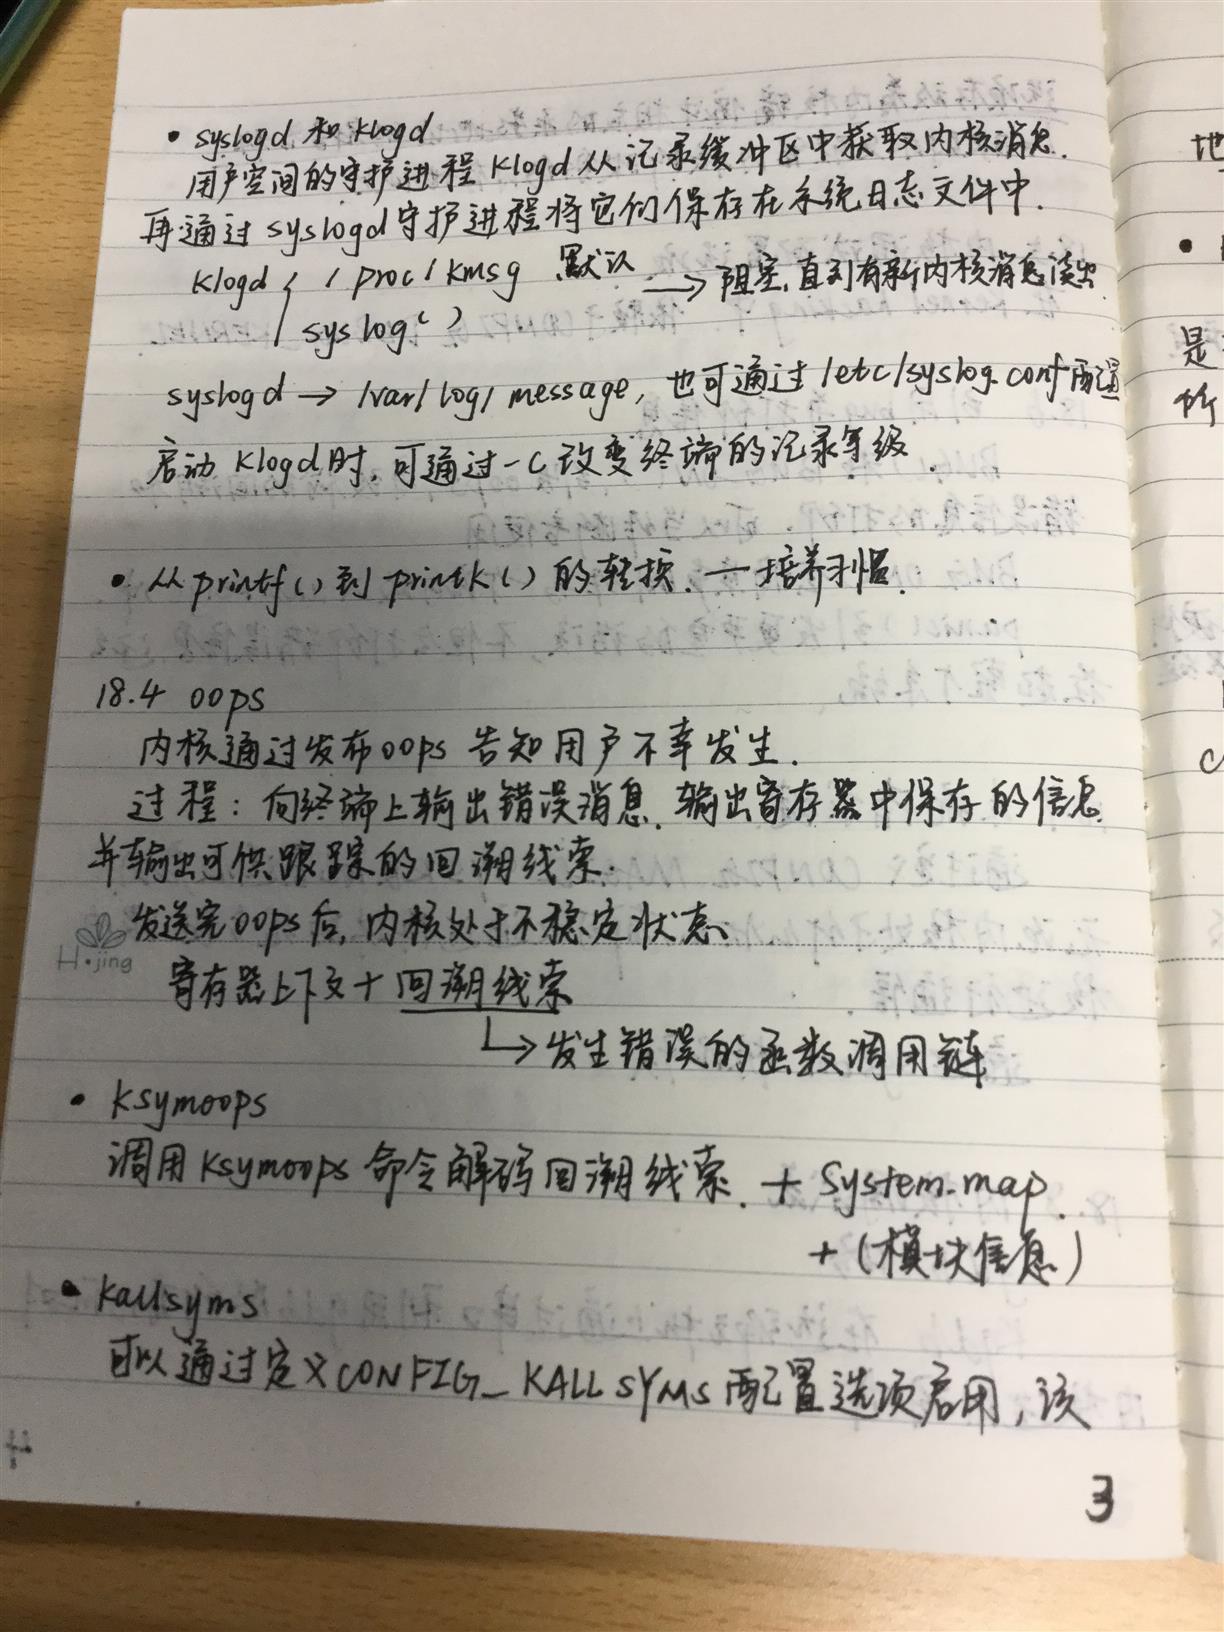 • syslogd 和 klogd
用户空间的守护进程 klogd 从记录缓冲区中获取内核消息.
再通过 syslogd 守护进程将它们保存在系统日志文件中.
klogd { /proc/kmsg 默认 → 阻塞,直到有新内核消息读出.
syslog()
syslogd → /var/log/message, 也可通过 /etc/syslog.conf 配置
启动 klogd 时, 可通过 -c 改变终端的记录等级.
• 从 printf() 到 printk() 的转换. — 培养习惯.
18.4 oops
内核通过发布 oops 告知用户不幸发生.
过程: 向终端上输出错误消息. 输出寄存器中保存的信息.
并输出可供跟踪的回溯线索.
发送完 oops 后, 内核处于不稳定状态.
H·jing
寄存器上下文 + 回溯线索
↳ 发生错误的函数调用链
• ksymoops
调用 ksymoops 命令解码回溯线索. + System.map.
+ (模块信息)
• kallsyms
可以通过定义 CONFIG_KALLSYMS 配置选项启用, 该
3
地
是
所